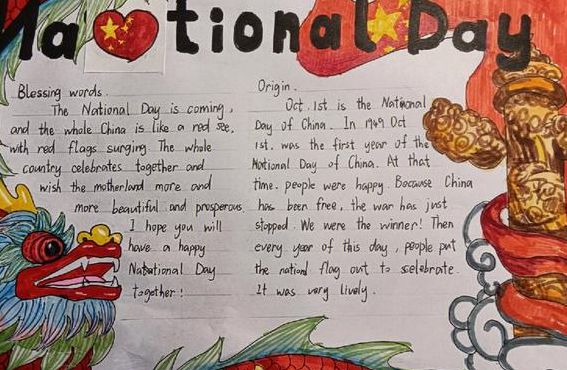 National Day
Blessing words.
The National Day is coming,
and the whole China is like a red see,
with red flags surging The whole
country celebrates together and
wish the motherland more and
more beautiful and prosperous
I hope you will
have a happy
National Day
together!
Origin.
Oct. 1st is the National
Day of China. In 1949 Oct
1st. was the first year of the
National Day of China. At that
time. people were happy. Because China
has been free, the war has just
stopped. We were the winner! Then
every year of this day, people put
the nationl flag out to selebrate.
It was very lively.